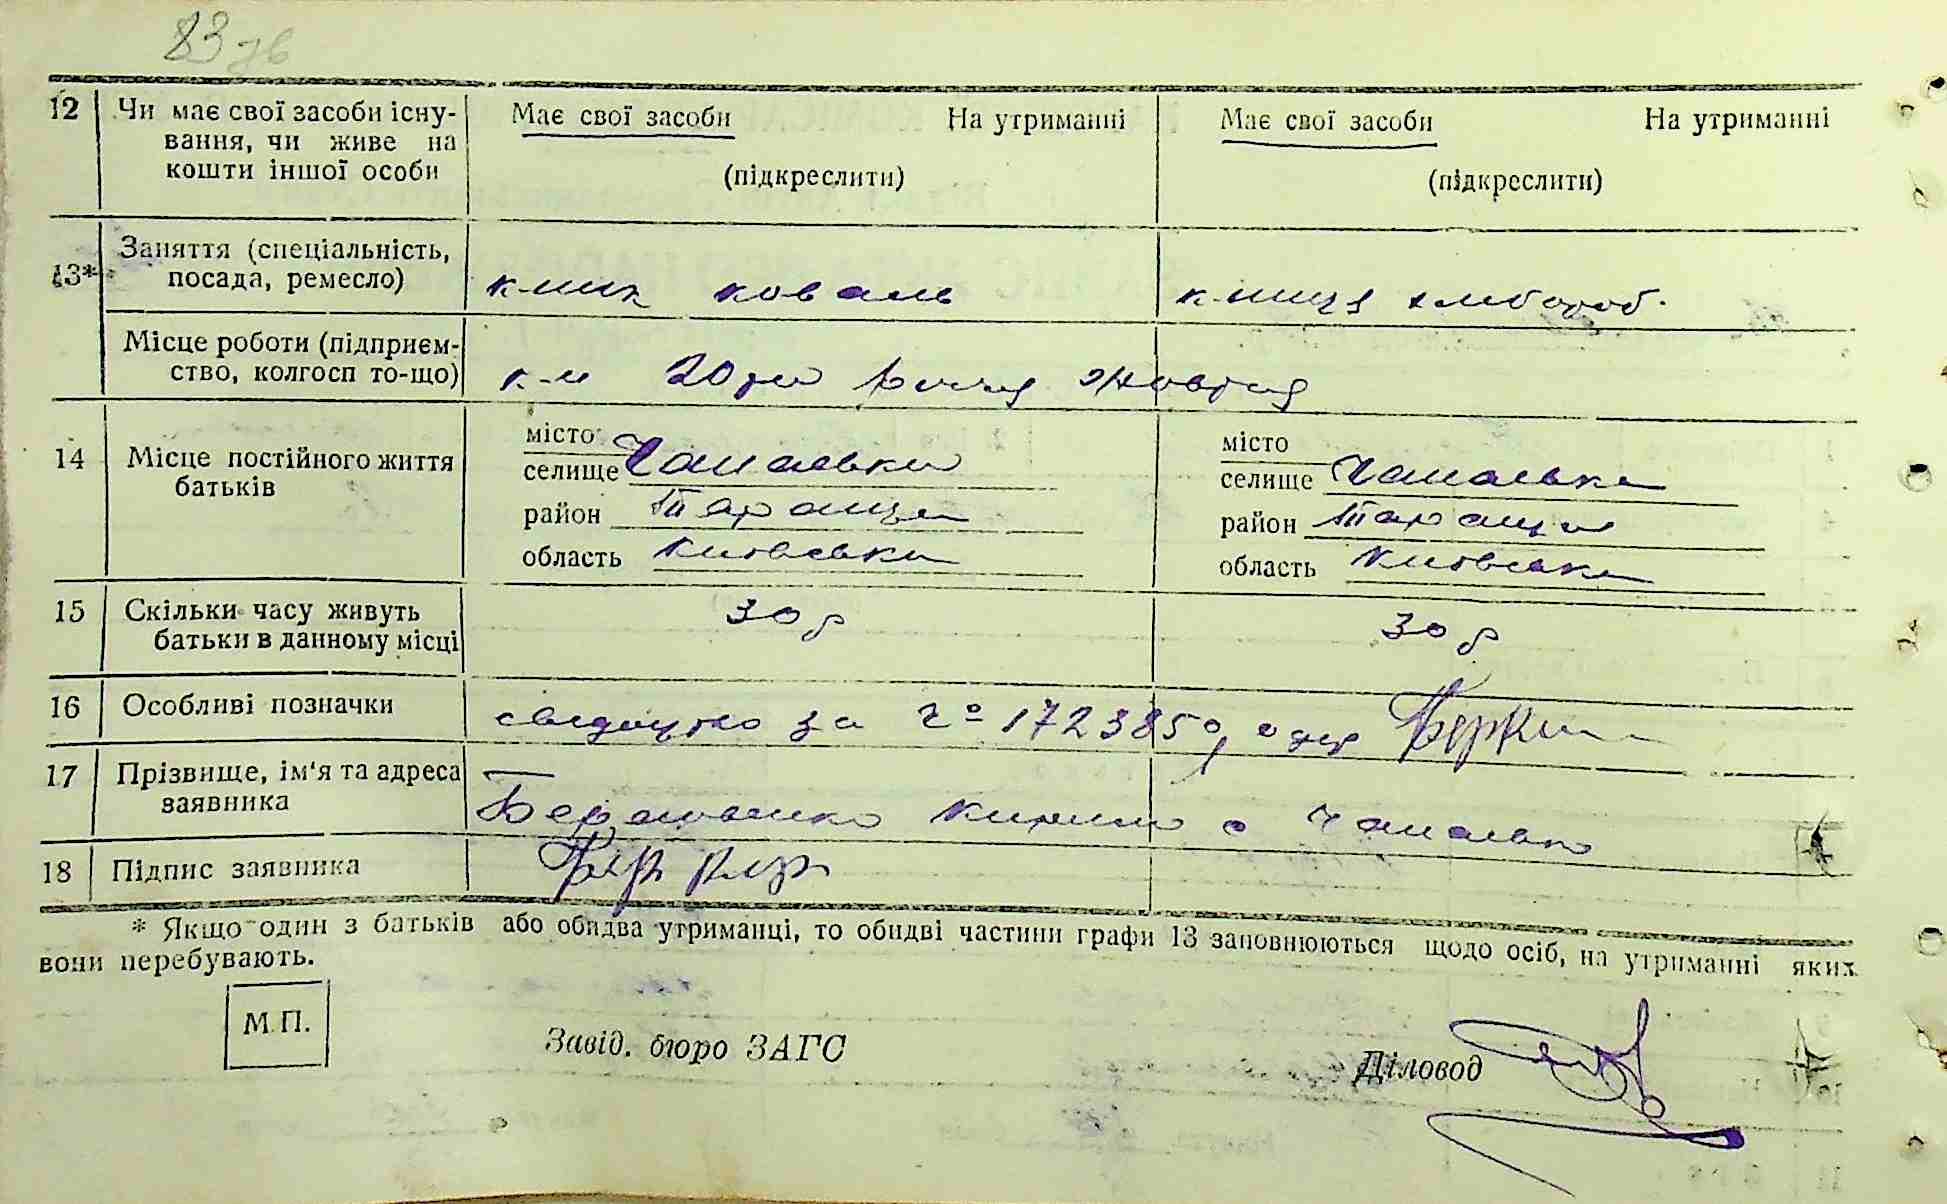 83 зв
12 Чи має свої засоби існу- Має свої засоби На утриманні Має свої засоби На утриманні
вання, чи живе на
кошти іншої особи (підкреслити) (підкреслити)
13* Заняття (спеціальність,
посада, ремесло) к-ник коваль к-ниця хлібороб.
Місце роботи (підприєм-
ство, колгосп то-що) к-п 20 річчя жовтня
14 Місце постійного життя
батьків
місто місто
селище Чапаєвка селище Чапаєвка
район Таращ район Таращ
область Київська область Київська
15 Скільки часу живуть
батьки в данному місці 30 р 30 р
16 Особливі позначки свідоцтво за № 172385
17 Прізвище, ім'я та адреса
заявника с Чапаєвка
18 Підпис заявника
* Якщо один з батьків або обидва утриманці, то обидві частини графи 13 заповнюються щодо осіб, на утриманні яких
вони перебувають.
М.П.
Завід. бюро ЗАГС
Діловод